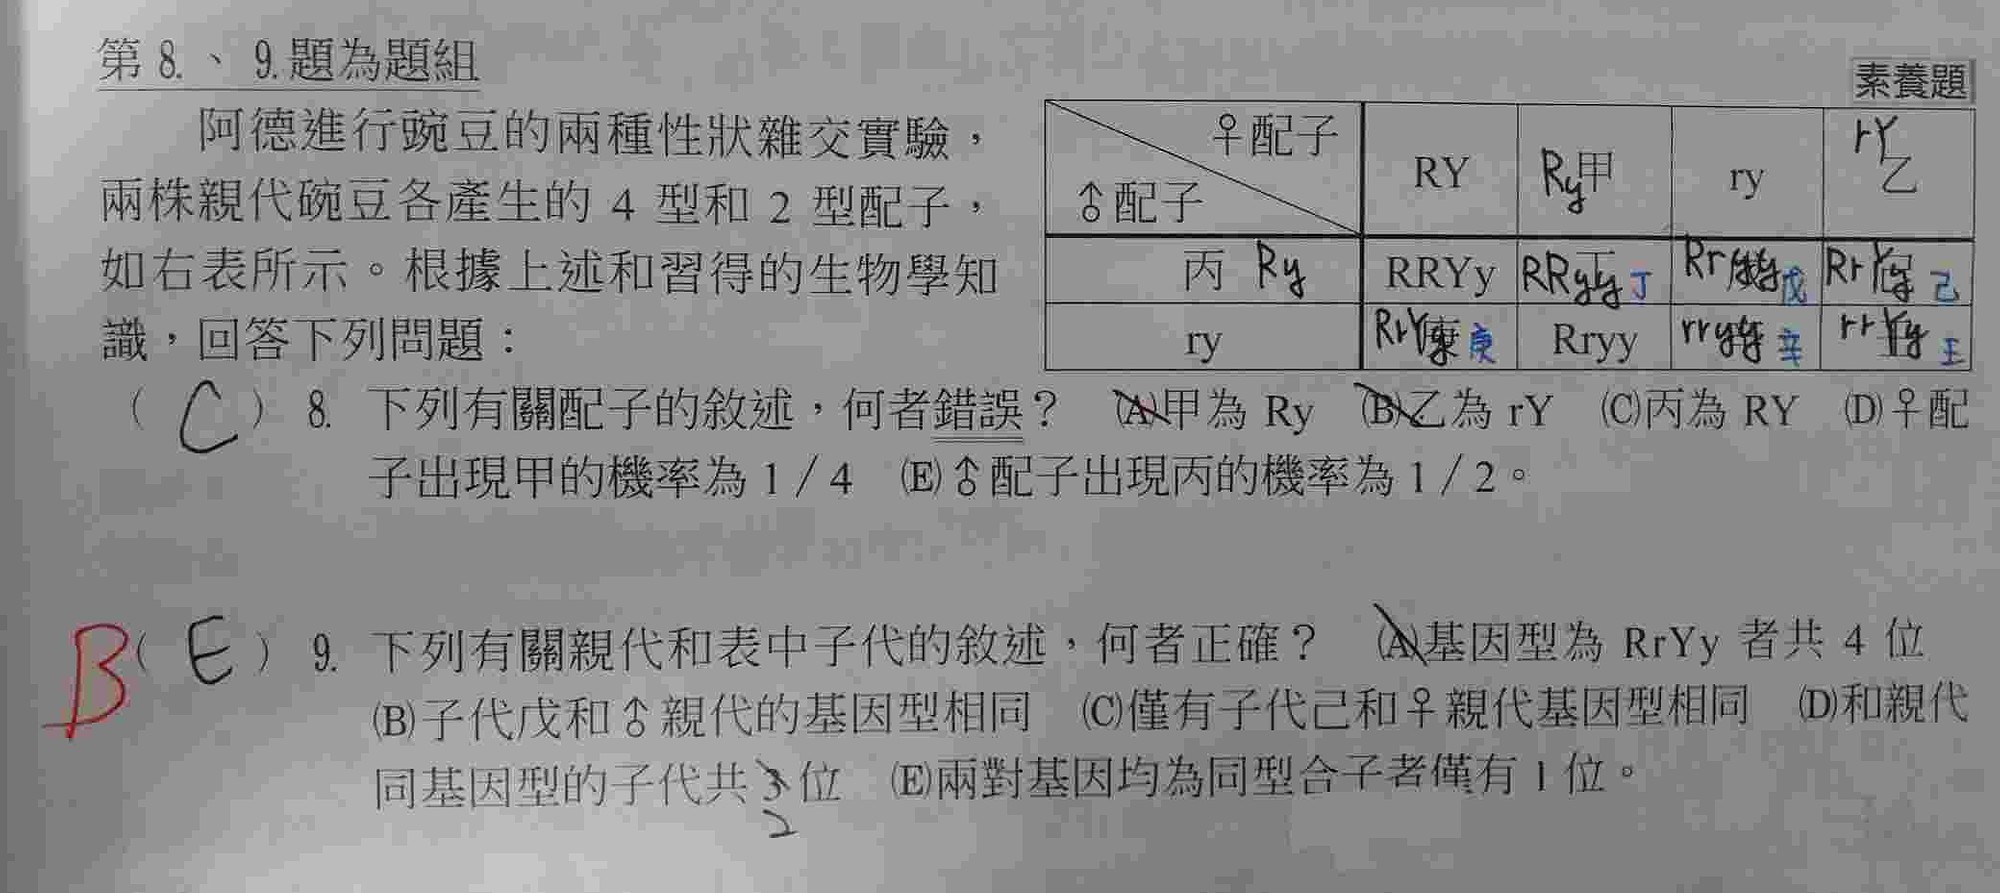 第 8. 、 9. 題為題組
素養題
阿德進行豌豆的兩種性狀雜交實驗，
兩株親代碗豆各產生的 4 型和 2 型配子，
如右表所示。根據上述和習得的生物學知
識，回答下列問題：
♀配子 RY Ry甲 ry rY乙
♂配子
丙 Ry RRYy RRyy丁 Rryy戊 RrYy己
ry RrYy庚 Rryy rryy辛 rrYy壬
( C ) 8. 下列有關配子的敘述，何者錯誤？ (A)甲為 Ry (B)乙為 rY (C)丙為 RY (D)♀配
子出現甲的機率為 1／4 (E)♂配子出現丙的機率為 1／2。
B ( E ) 9. 下列有關親代和表中子代的敘述，何者正確？ (A)基因型為 RrYy 者共 4 位
(B)子代戊和♂親代的基因型相同 (C)僅有子代己和♀親代基因型相同 (D)和親代
同基因型的子代共 3 位 (E)兩對基因均為同型合子者僅有 1 位。
2